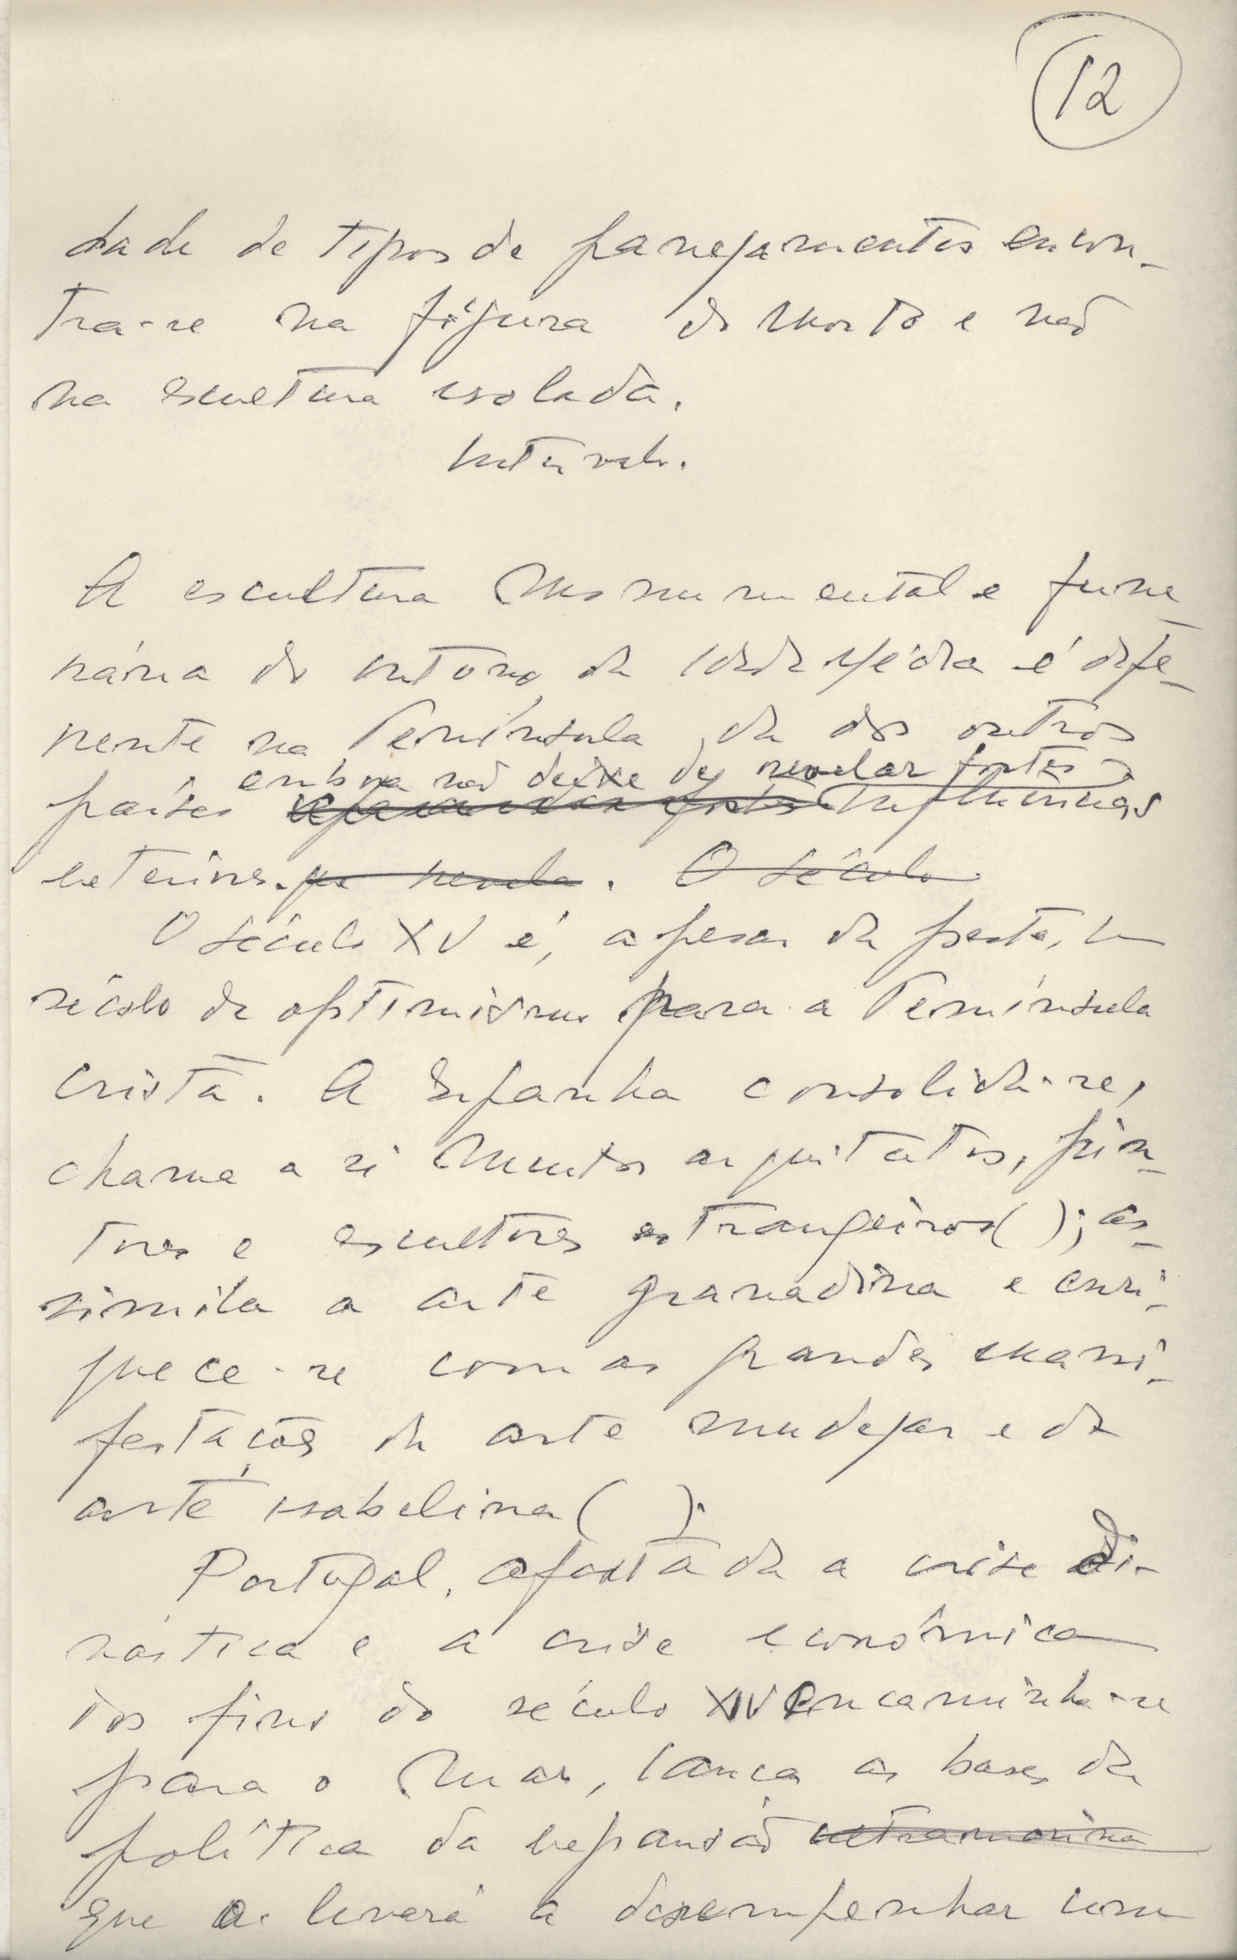 12
dade de tipos de panejamentos encon-
tra-se na figura do morto e não
na escultura isolada.
Intervalo.
A escultura monumental e fune
rária do outono da Idade Média é dife-
rente na Península, da dos outros
embora não deixe de revelar fortes
países influências
exteriores. que revela. O século
O século XV é, apesar da peste, um
século de optimismo para a Península
Cristã. A Espanha consolida-se,
chama a si muitos arquitetos, pin-
tores e escultores estrangeiros ( ); as-
simila a arte granadina e enri-
quece-se com as grandes mani-
festações da arte mudejar e da
arte isabelina ( ).
Portugal, afastada a crise di-
nástica e a crise económica
dos fins do século XIV encaminha-se
para o mar, lança as bases da
política da expansão ultramarina
que a levará a desempenhar com